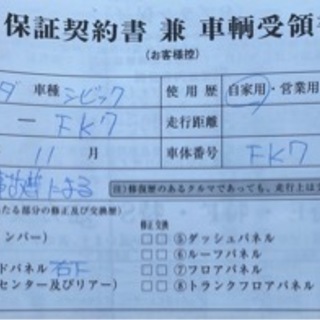 保証契約書 兼 車輌受領
(お客様控)
ダ 車種 シビック 使用歴 自家用・営業用
ー FK7 走行距離
11月 車体番号 FK7
による 注)修復歴のあるクルマであっても、走行上は
たる部分の修正及び交換歴) 修正 交換
ンバー) □□⑤ダッシュパネル
□□⑥ルーフパネル
ドパネル 右下 □□⑦フロアパネル
センター及びリアー) □□⑧トランクフロアパネル